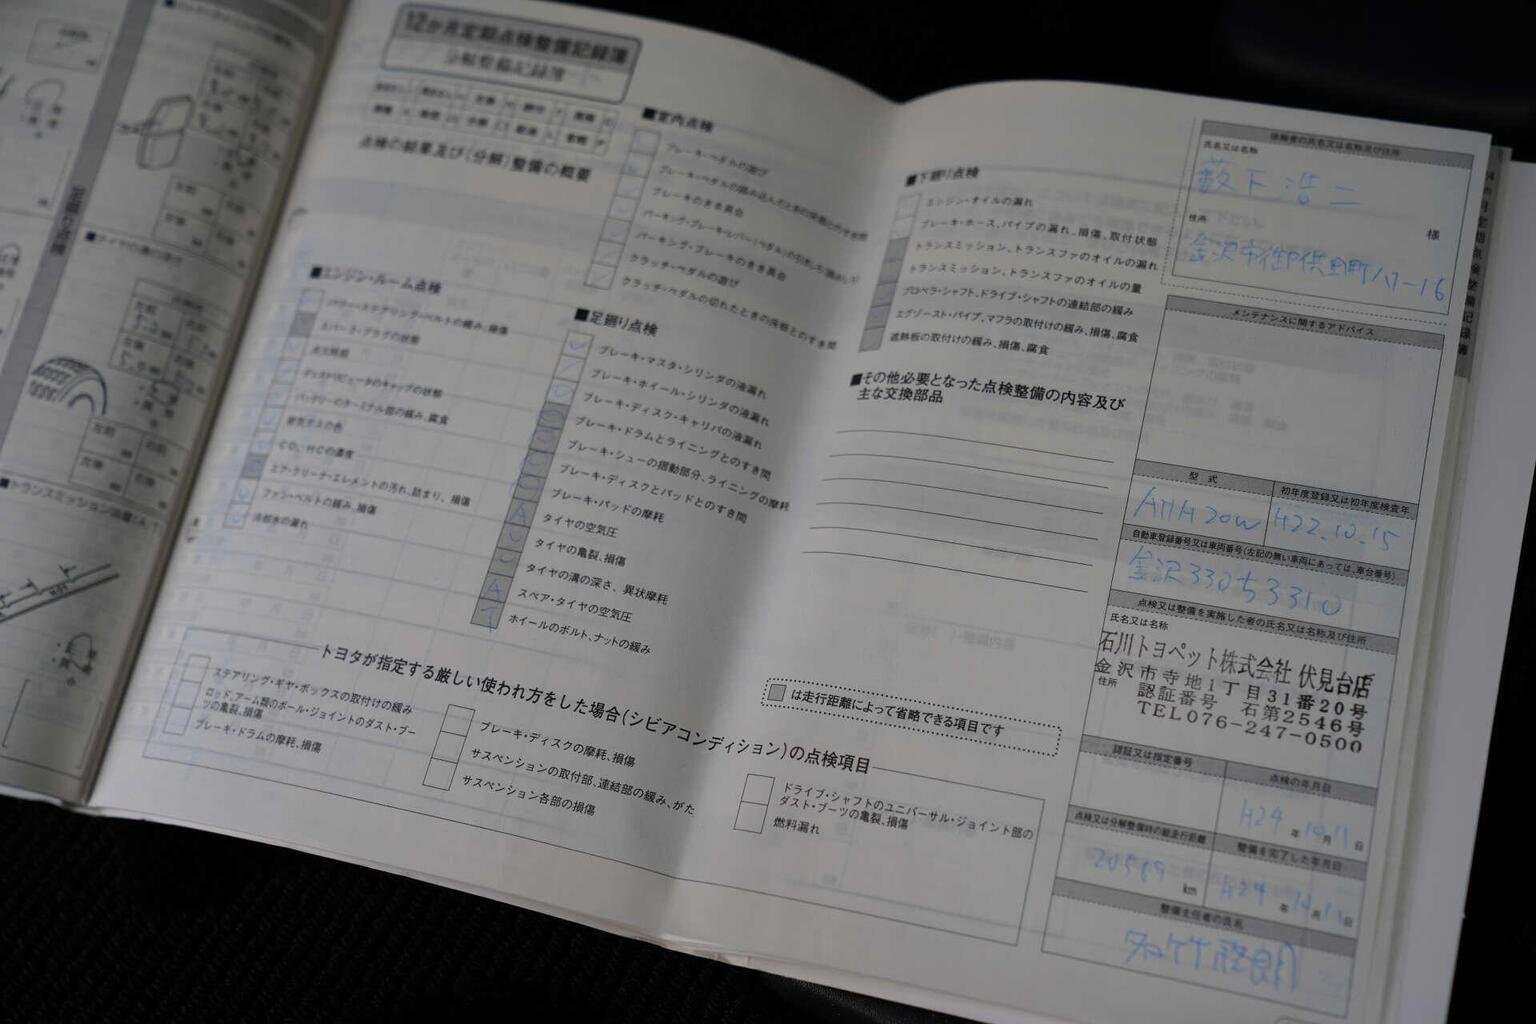 12か月定期点検整備記録簿
分解整備記録簿
点検の結果及び(分解)整備の概要
■エンジン・ルーム点検
パワー・ステアリング・ベルトの緩み、損傷
スパーク・プラグの状態
点火時期
ディストリビュータのキャップの状態
バッテリのターミナル部の緩み、腐食
排気ガスの色
CO、HCの濃度
エア・クリーナ・エレメントの汚れ、詰まり、損傷
ファン・ベルトの緩み、損傷
冷却水の漏れ
■室内点検
ブレーキ・ペダルの遊び
ブレーキ・ペダルの踏み込んだときの床板とのすき間
ブレーキのきき具合
パーキング・ブレーキ・レバー(ペダル)の引きしろ(踏みしろ)
パーキング・ブレーキのきき具合
クラッチ・ペダルの遊び
クラッチ・ペダルの切れたときの床板とのすき間
■足廻り点検
ブレーキ・マスタ・シリンダの液漏れ
ブレーキ・ホイール・シリンダの液漏れ
ブレーキ・ディスク・キャリパの液漏れ
ブレーキ・ドラムとライニングとのすき間
ブレーキ・シューの摺動部分、ライニングの摩耗
ブレーキ・ディスクとパッドとのすき間
ブレーキ・パッドの摩耗
タイヤの空気圧
タイヤの亀裂、損傷
タイヤの溝の深さ、異状摩耗
スペア・タイヤの空気圧
ホイールのボルト、ナットの緩み
■下廻り点検
エンジン・オイルの漏れ
ブレーキ・ホース、パイプの漏れ、損傷、取付状態
トランスミッション、トランスファのオイルの漏れ
トランスミッション、トランスファのオイルの量
プロペラ・シャフト、ドライブ・シャフトの連結部の緩み
エグゾースト・パイプ、マフラの取付けの緩み、損傷、腐食
遮熱板の取付けの緩み、損傷、腐食
■その他必要となった点検整備の内容及び
主な交換部品
は走行距離によって省略できる項目です
トヨタが指定する厳しい使われ方をした場合(シビアコンディション)の点検項目
ステアリング・ギヤ・ボックスの取付けの緩み
ロッド、アーム類のボール・ジョイントのダスト・ブー
ツの亀裂、損傷
ブレーキ・ドラムの摩耗、損傷
ブレーキ・ディスクの摩耗、損傷
サスペンションの取付部、連結部の緩み、がた
サスペンション各部の損傷
ドライブ・シャフトのユニバーサル・ジョイント部の
ダスト・ブーツの亀裂、損傷
燃料漏れ
依頼者の氏名又は名称及び住所
氏名又は名称
藪下浩二
様
住所
金沢市御供田町ハ1-16
メンテナンスに関するアドバイス
型式
初年度登録又は初年度検査年
ANH20W
H22.10.15
自動車登録番号又は車両番号(左記の無い車両にあっては、車台番号)
金沢330 53310
点検又は整備を実施した者の氏名又は名称及び住所
氏名又は名称
石川トヨペット株式会社 伏見台店
金沢市寺地1丁目31番20号
住所
認証番号 石第2546号
TEL076-247-0500
認証又は指定番号
点検の年月日
H24年10月11日
点検又は分解整備時の総走行距離
整備を完了した年月日
20569km
H24年10月11日
整備主任者の氏名